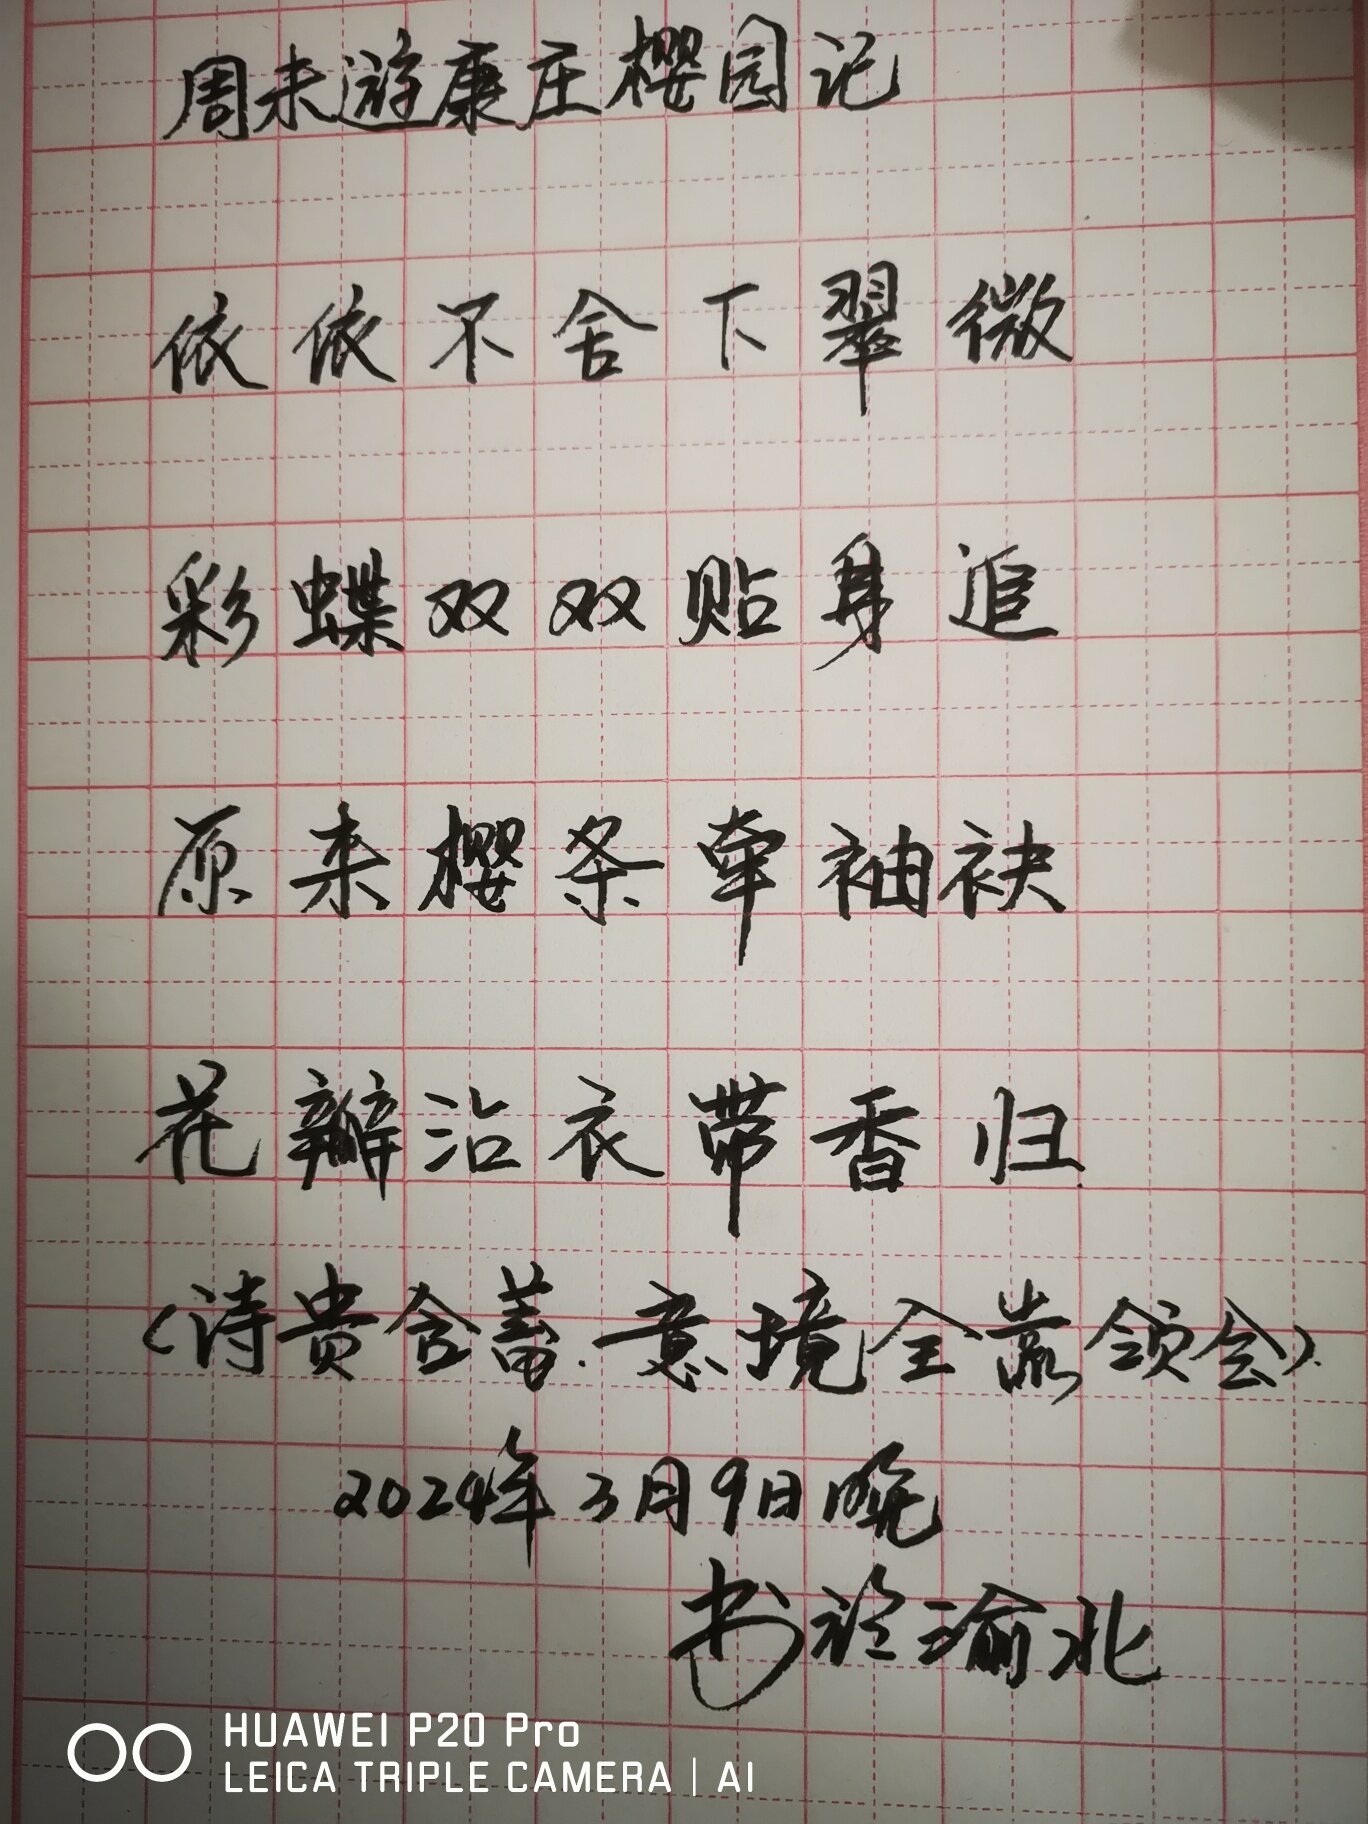 周末游康庄樱园记
依依不舍下翠微
彩蝶双双贴身追
原来樱条牵袖袂
花瓣沾衣带香归
(诗贵含蓄.意境全靠领会).
2024年3月9日晚
书於渝北
HUAWEI P20 Pro
LEICA TRIPLE CAMERA | AI